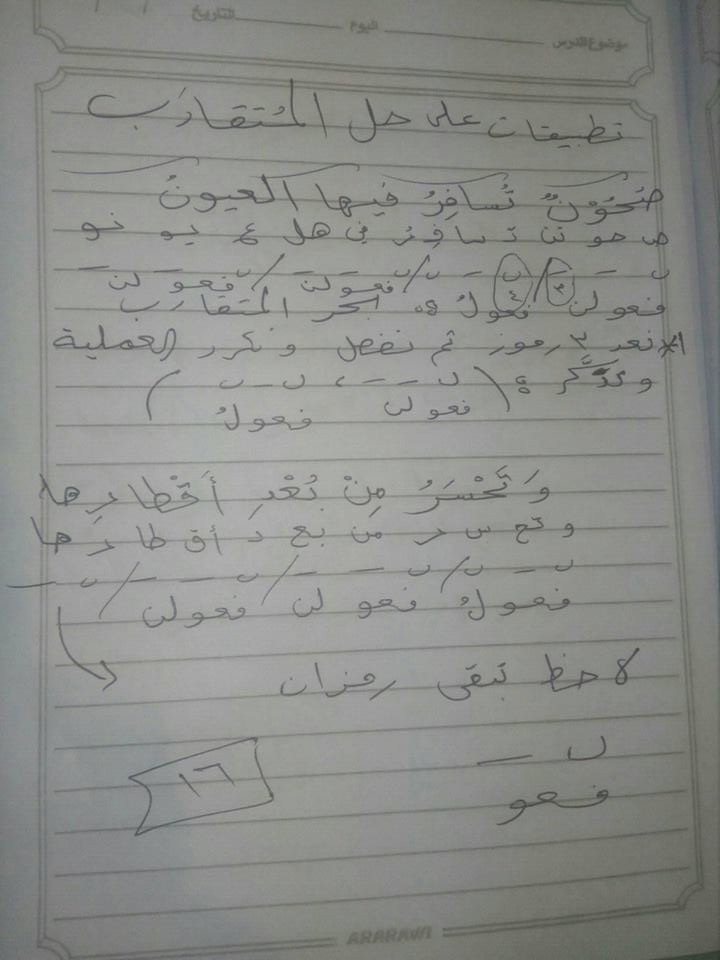 موضوع الدرس اليوم التاريخ
تطبيقات على حل المُتقارَب
صَحُوْنٌ تُسافِرُ فيها العيونُ
ص حو نن ت سا ف ر في هل ع يو نو
ں _ _ / ں _ ں / ں _ _ / ں _ _
فعولن فعولُ فعولن فعولن
بحر المتقارب
نعد ٣ رموز ثم نفصل ونكرر العملية
وتذَكَّر (ں _ _ ، ں _ ں)
فعولن فعولُ
وَتَحْسَرُ مِنْ بُعْدِ أَقْطارِها
و تح س ر من بع د أق طا ر ها
ں _ ں / ں _ _ / ں _ _ / ں _
فعولُ فعولن فعولن
لاحظ تبقى رمزان
ں _
فعو
١٦
ARARAWA